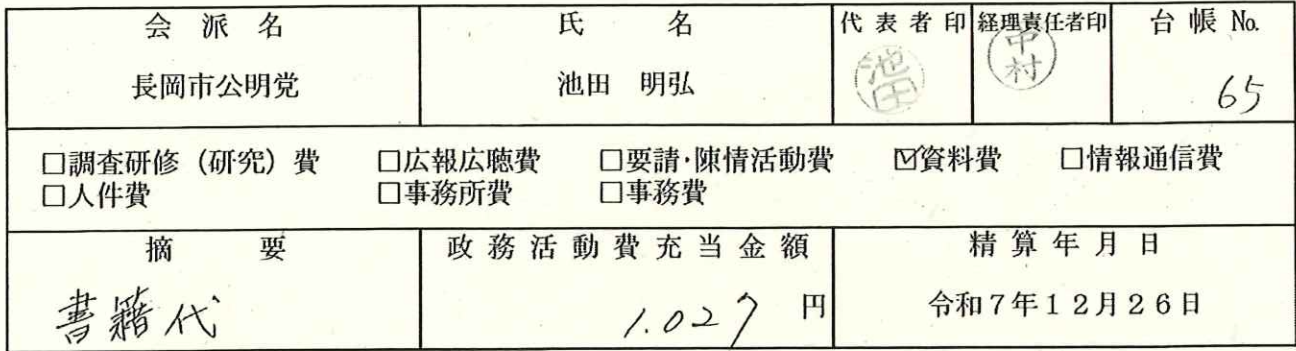 会派名 氏名 代表者印 経理責任者印 台帳No.
長岡市公明党 池田 明弘 池田 中村 65
□調査研修（研究）費 □広報広聴費 □要請・陳情活動費 ☑資料費 □情報通信費
□人件費 □事務所費 □事務費
摘要 政務活動費充当金額 精算年月日
書籍代 1.027 円 令和7年12月26日